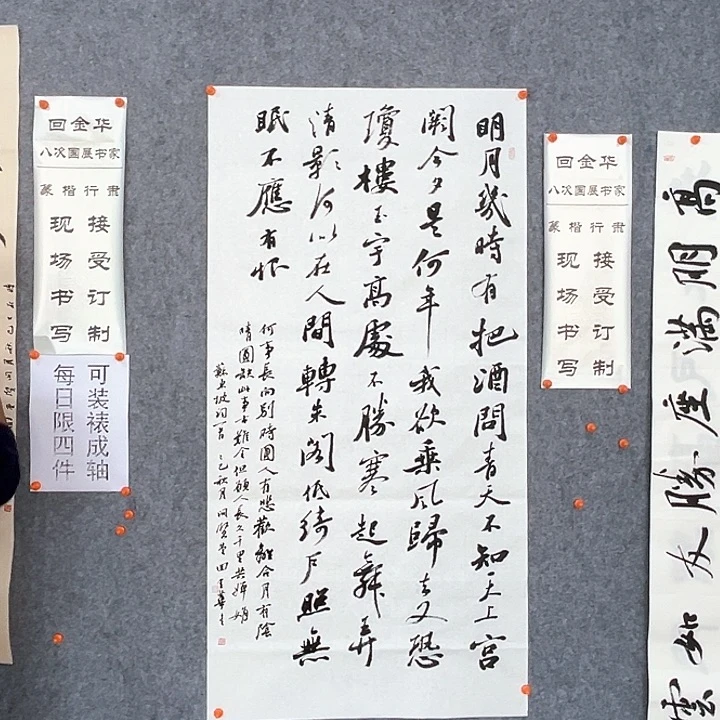 高朋滿座勝友如雲
回金华
八次国展书家
篆楷行隶
接受订制
现场书写
明月幾時有把酒問青天不知天上宮
闕今夕是何年我欲乘風歸去又恐
瓊樓玉宇高處不勝寒起舞弄
清影何似在人間轉朱閣低綺戶照無
眠不應有恨
何事長向別時圓人有悲歡離合月有陰
晴圓缺此事古難全但願人長久千里共嬋娟
蘇東坡詞一首 乙巳秋月
回金华
八次国展书家
篆楷行隶
接受订制
现场书写
可装裱成轴
每日限四件